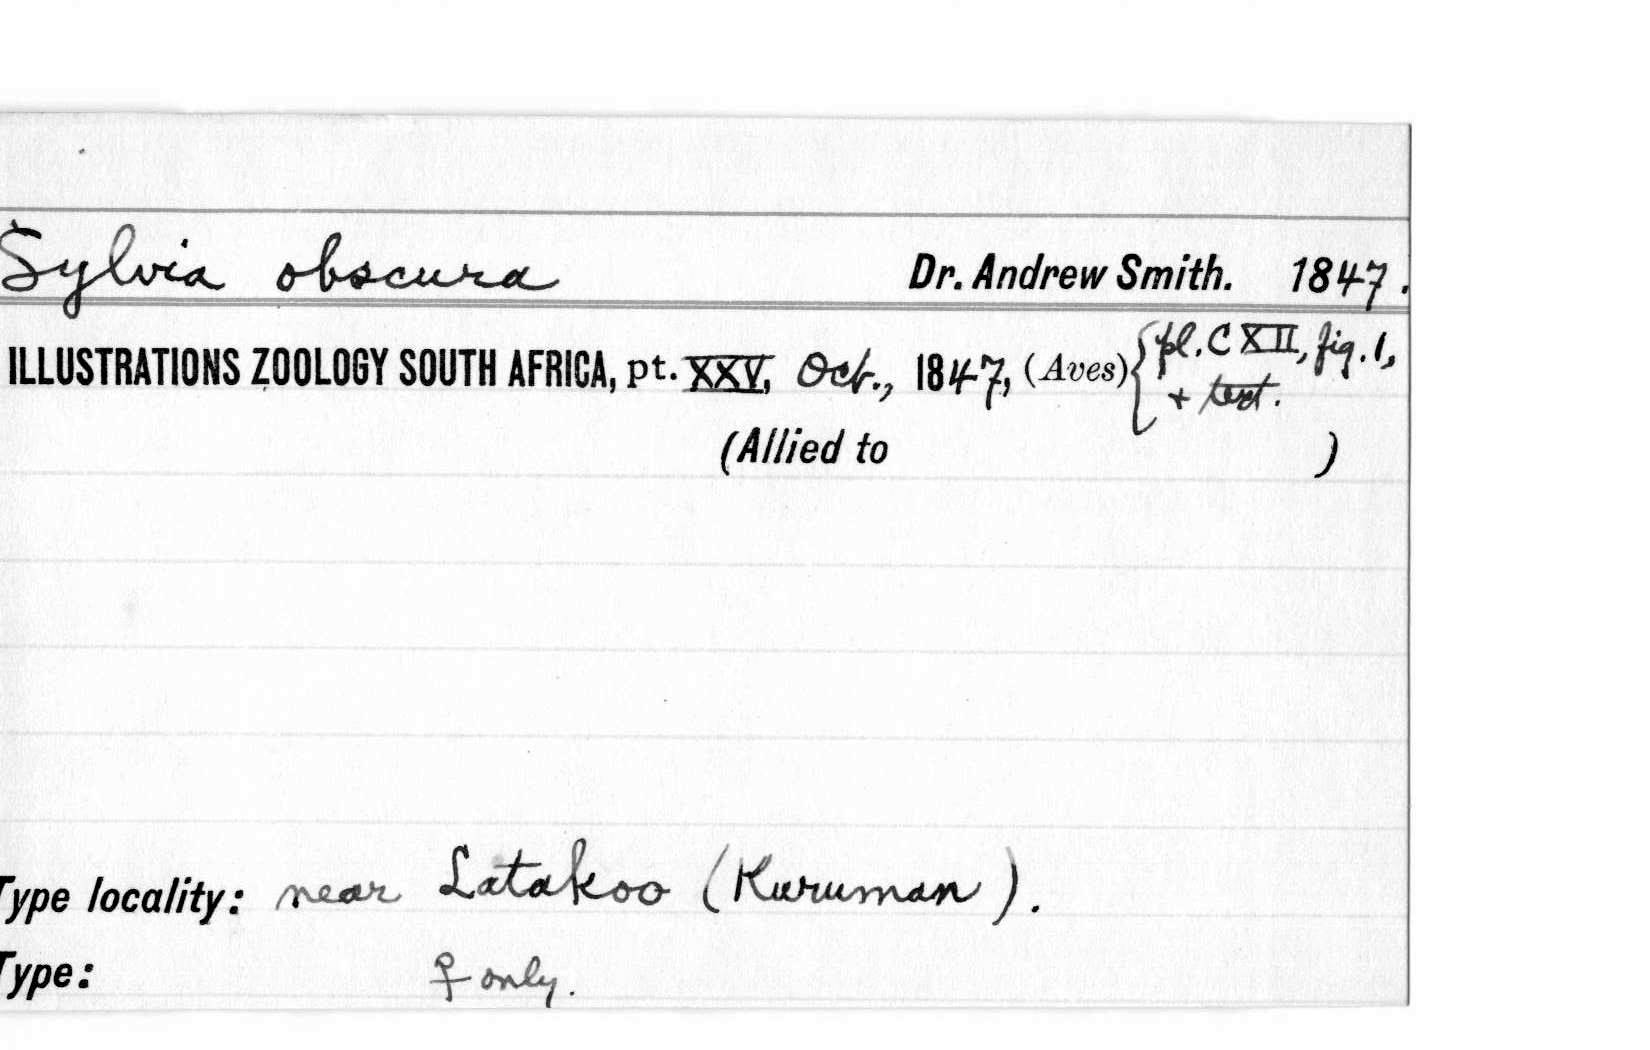 Sylvia obscura Dr. Andrew Smith. 1847.
ILLUSTRATIONS ZOOLOGY SOUTH AFRICA, pt. XXV, Oct., 1847, (Aves) { pl. CXII, fig. 1,
+ text.
(Allied to )
Type locality: near Latakoo (Kuruman).
Type: ♀ only.